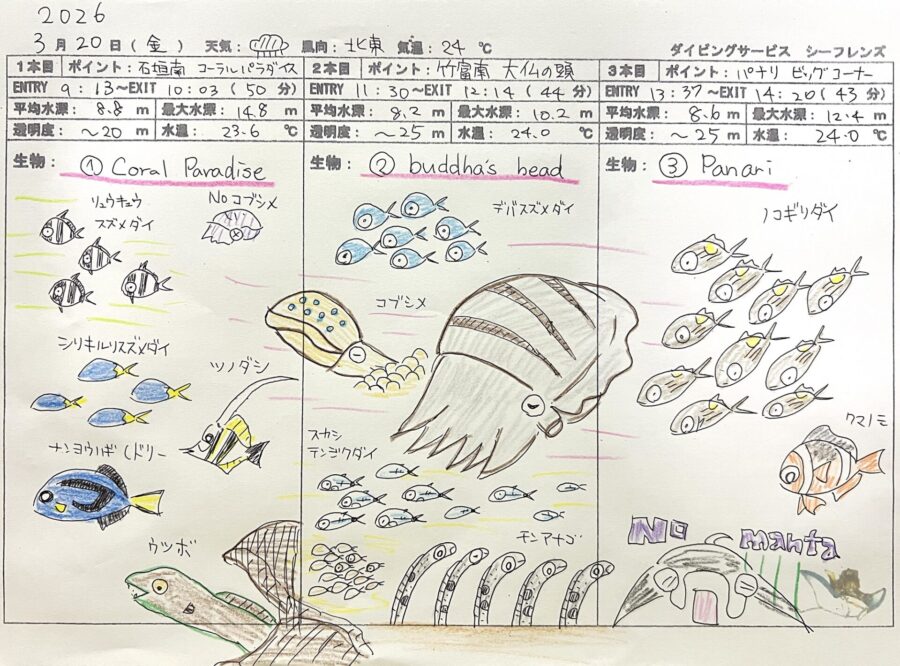 2026
3月20日(金) 天気: 風向:北東 気温:24℃ ダイビングサービス シーフレンズ
1本目 ポイント:石垣南 コーラルパラダイス
ENTRY 9:13~EXIT 10:03(50分)
平均水深: 8.8 m 最大水深: 14.8 m
透明度: ~20 m 水温: 23.6 ℃
生物: ① Coral Paradise
リュウキュウ
スズメダイ
Noコブシメ
シリキルリスズメダイ
ツノダシ
ナンヨウハギ(ドリー
ウツボ
2本目 ポイント:竹富南 大仏の頭
ENTRY 11:30~EXIT 12:14(44分)
平均水深: 8.2 m 最大水深: 10.2 m
透明度: ~25 m 水温: 24.0 ℃
生物: ② buddha's head
デバスズメダイ
コブシメ
スカシ
テンジクダイ
チンアナゴ
3本目 ポイント:パナリ ビッグコーナー
ENTRY 13:37~EXIT 14:20(43分)
平均水深: 8.6 m 最大水深: 12.4 m
透明度: ~25 m 水温: 24.0 ℃
生物: ③ Panari
ノコギリダイ
クマノミ
No manta